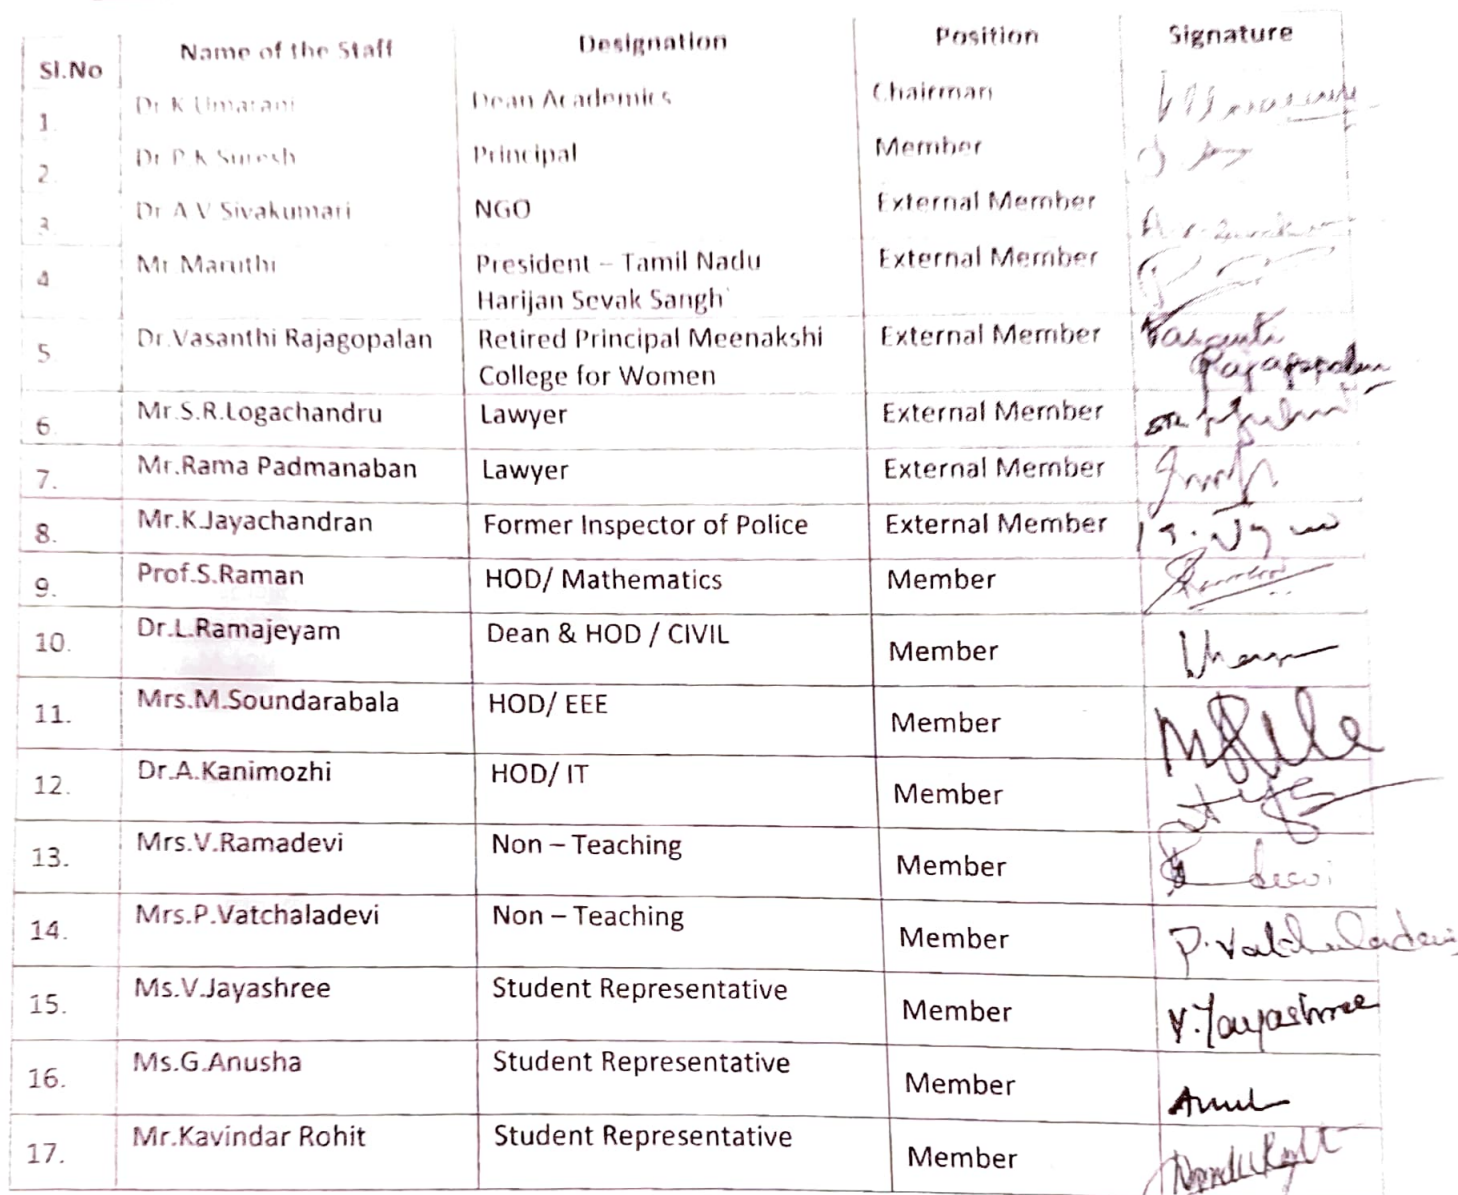 Sl.No Name of the Staff Designation Position Signature
1. Dr K Umarani Dean Academics Chairman
2. Dr P K Suresh Principal Member
3. Dr A V Sivakumari NGO External Member
4 Mr Maruthi President – Tamil Nadu External Member
Harijan Sevak Sangh
5 Dr.Vasanthi Rajagopalan Retired Principal Meenakshi External Member Vasanti
College for Women Rajagopalan
6. Mr.S.R.Logachandru Lawyer External Member
7. Mr.Rama Padmanaban Lawyer External Member
8. Mr.K.Jayachandran Former Inspector of Police External Member
9. Prof.S.Raman HOD/ Mathematics Member
10. Dr.L.Ramajeyam Dean & HOD / CIVIL Member
11. Mrs.M.Soundarabala HOD/ EEE Member
12. Dr.A.Kanimozhi HOD/ IT Member
13. Mrs.V.Ramadevi Non – Teaching Member devi
14. Mrs.P.Vatchaladevi Non – Teaching Member P.Vatchaladevi
15. Ms.V.Jayashree Student Representative Member V.Jayashree
16. Ms.G.Anusha Student Representative Member
17. Mr.Kavindar Rohit Student Representative Member